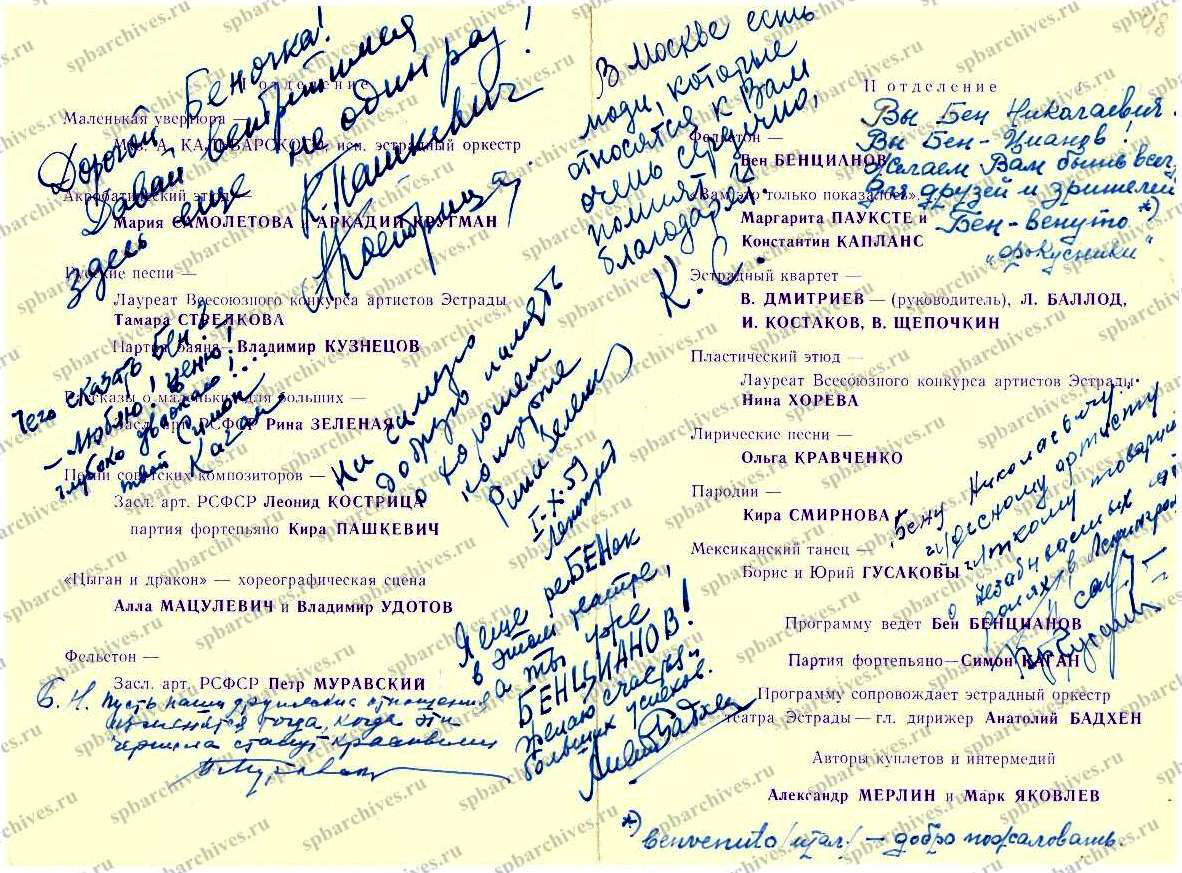 Дорогой Беночка!
Давай встретимся
здесь еще не один раз!
К. Пашкевич
Маленькая увертюра —
эстрадный оркестр
Акробатический этюд —
Мария САМОЛЕТОВА и АРКАДИЙ КРУГМАН
Русские песни —
Лауреат Всесоюзного конкурса артистов Эстрады
Тамара СТРЕЛКОВА
Партия баяна — Владимир КУЗНЕЦОВ
Чего сказать Бен?
— Люблю, ценю!
глубоко уважаю!...
твой Симон
Каган
Рассказы о маленьких для больших —
Засл. арт. РСФСР Рина ЗЕЛЕНАЯ
На самую
добрую память
о хорошем
концерте
Рина Зеленая
I-X-59
Ленинград
Песни советских композиторов —
Засл. арт. РСФСР Леонид КОСТРИЦА
партия фортепьяно Кира ПАШКЕВИЧ
«Цыган и дракон» — хореографическая сцена
Алла МАЦУЛЕВИЧ и Владимир УДОТОВ
Фельетон —
Засл. арт. РСФСР Петр МУРАВСКИЙ
Б. Н. Пусть наши дружеские отношения
изменятся тогда, когда эти
чернила станут красными
Я еще ребЕНок
в этом театре,
а ты уже
БЕНЦИАНОВ!
Желаю счастья и
больших успехов.
В Москве есть
люди, которые
относятся к Вам
очень сердечно,
помнят и
благодарят.
К. С.
II отделение
Вы Бен Николаевич.
Вы Бен-Цианов!
Желаем Вам быть всегда
для друзей и зрителей
Бен-венуто *)
„фокусники"
Фельетон —
Бен БЕНЦИАНОВ
«Вам это только показалось» —
Маргарита ПАУКСТЕ и
Константин КАПЛАНС
Эстрадный квартет —
В. ДМИТРИЕВ — (руководитель), Л. БАЛЛОД,
И. КОСТАКОВ, В. ЩЕПОЧКИН
Пластический этюд —
Лауреат Всесоюзного конкурса артистов Эстрады
Нина ХОРЕВА
Лирические песни —
Ольга КРАВЧЕНКО
Пародии —
Кира СМИРНОВА
Мексиканский танец —
Борис и Юрий ГУСАКОВЫ
Бену Николаевичу
чудесному артисту
чуткому товарищу
Программу ведет Бен БЕНЦИАНОВ
Партия фортепьяно — Симон КАГАН
Программу сопровождает эстрадный оркестр
театра Эстрады — гл. дирижер Анатолий БАДХЕН
Авторы куплетов и интермедий
Александр МЕРЛИН и Марк ЯКОВЛЕВ
*) benvenuto (итал.) — добро пожаловать.
spbarchives.ru